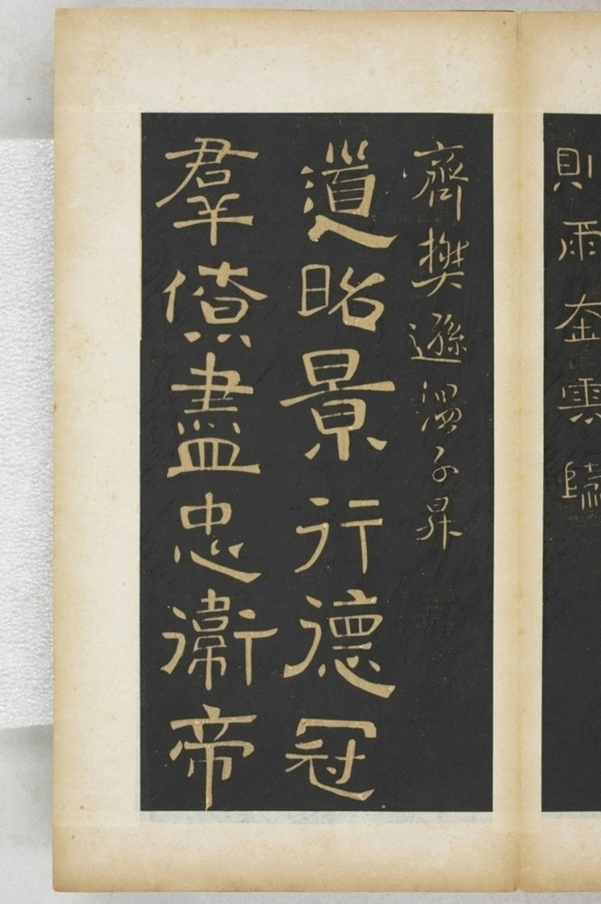 則雨奎興歸
齊樊遜溫子昇
道昭景行德冠
羣僚盡忠衛帝